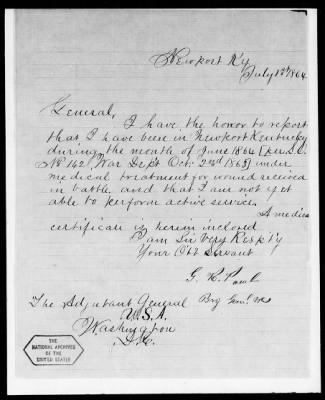 Newport Ky
July 1st 1864
General,
I have the honor to report
that I have been in Newport Kentucky
during the month of June 1864 [per S.O.
No 142, War Dept Oct: 22d 1863] under
medical treatment for wound received
in battle and that I am not yet
able to perform active service.
A medical
certificate is herein inclosed
I am Sir Very Respt'y
Your Obt Servant
G. R. Paul
Brg Genl. Vol
The Adjutant General
U.S.A.
Washington
D.C.
THE
NATIONAL ARCHIVES
OF THE
UNITED STATES